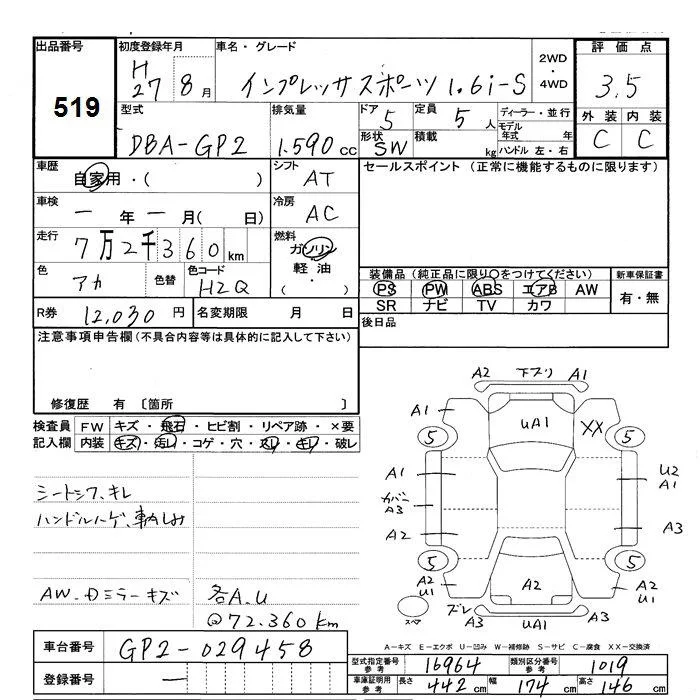 出品番号 初度登録年月 車名・グレード 2WD・4WD 評価点
519 H27 8月 インプレッサスポーツ 1.6i-S 3.5
型式 排気量 ドア 定員 ディーラー・並行 外装 内装
DBA-GP2 1.590cc 5 5人 モデル年式 年 C C
形状 SW 積載 kg ハンドル 左・右
車歴 シフト セールスポイント (正常に機能するものに限ります)
自家用・( ) AT
車検 冷房
ー年ー月( 日) AC
走行 燃料
7万2千360km ガソリン
軽油・
( )
色 色替 色コード
アカ H2Q
装備品 (純正品に限り○をつけてください) 新車保証書
PS PW ABS エアB AW 有・無
SR ナビ TV カワ
R券 12,030円 名変期限 月 日 後日品
注意事項申告欄(不具合内容等は具体的に記入して下さい)
修復歴 有 〔箇所 〕
検査員 FW キズ・飛石・ヒビ割・リペア跡・×要
記入欄 内装 キズ・汚れ・コゲ・穴・スレ・キレ・破レ
シートシワ、キレ
AW、Dミラーキズ 各A.U
@72.360km
A2 下スリ A1
A1 UA1 XX
5 5
A1 U2 A1
カバー A3
A2 A3
5 5
A2 U1 A2 A2 U1
スペア ズレ A3 UA1 A3
車台番号 GP2-029458
登録番号 ー
A-キズ E-エクボ U-凹み W-補修跡 S-サビ C-腐食 XX-交換済
型式指定番号 参考 16964 類別区分番号 参考 1019
車庫証明用 参考 長さ 442cm 幅 174cm 高さ 146cm